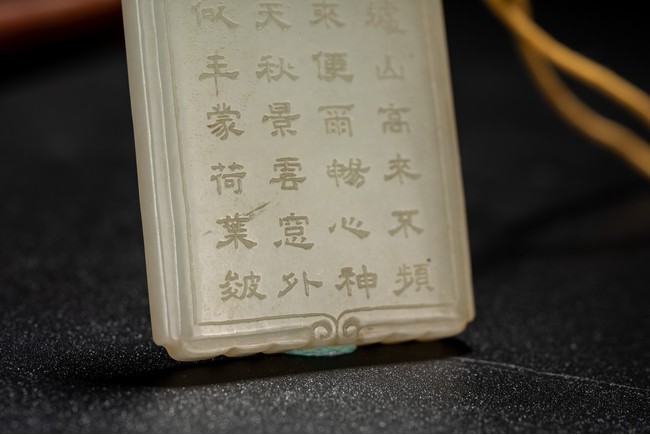 山高來不頻
來便爾暢心神
天秋景雲窓外
似丰蒙荷葉皴